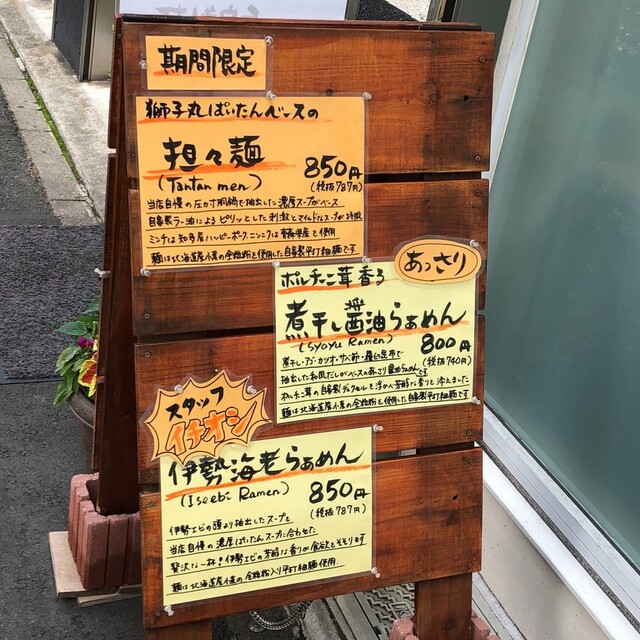 期間限定
獅子丸ぱいたんベースの
担々麺
850円
(Tantan men)
(税抜787円)
当店自慢の圧力寸胴鍋で抽出した濃厚スープがベース
自家製ラー油によるピリッとした刺激とマイルドなスープが特徴
ミンチは知多産ハッピーポーク、ニンニクは青森県産を使用
麺は北海道産小麦の全粒粉を使用した自家製平打ち細麺です
あっさり
ポルチーニ茸香る
煮干し醤油らぁめん
(Syoyu Ramen)
800円
(税抜740円)
煮干し・アゴ・カツオ・サバ節・羅臼昆布で
抽出した和風だしがベースのあっさり醤油らぁめんです
ポルチーニ茸の自家製デュクセルを浮かべ芳醇な香りを添えました
麺は北海道産小麦の全粒粉を使用した自家製平打ち細麺です
スタッフ
イチオシ
伊勢海老らぁめん
(Iseebi Ramen)
850円
(税抜787円)
伊勢エビの頭より抽出したスープと
当店自慢の濃厚ぱいたんスープに合わせた
贅沢な一杯!伊勢エビの芳醇な香りが食欲をそそります
麺は北海道産小麦の全粒粉入り平打ち細麺使用.